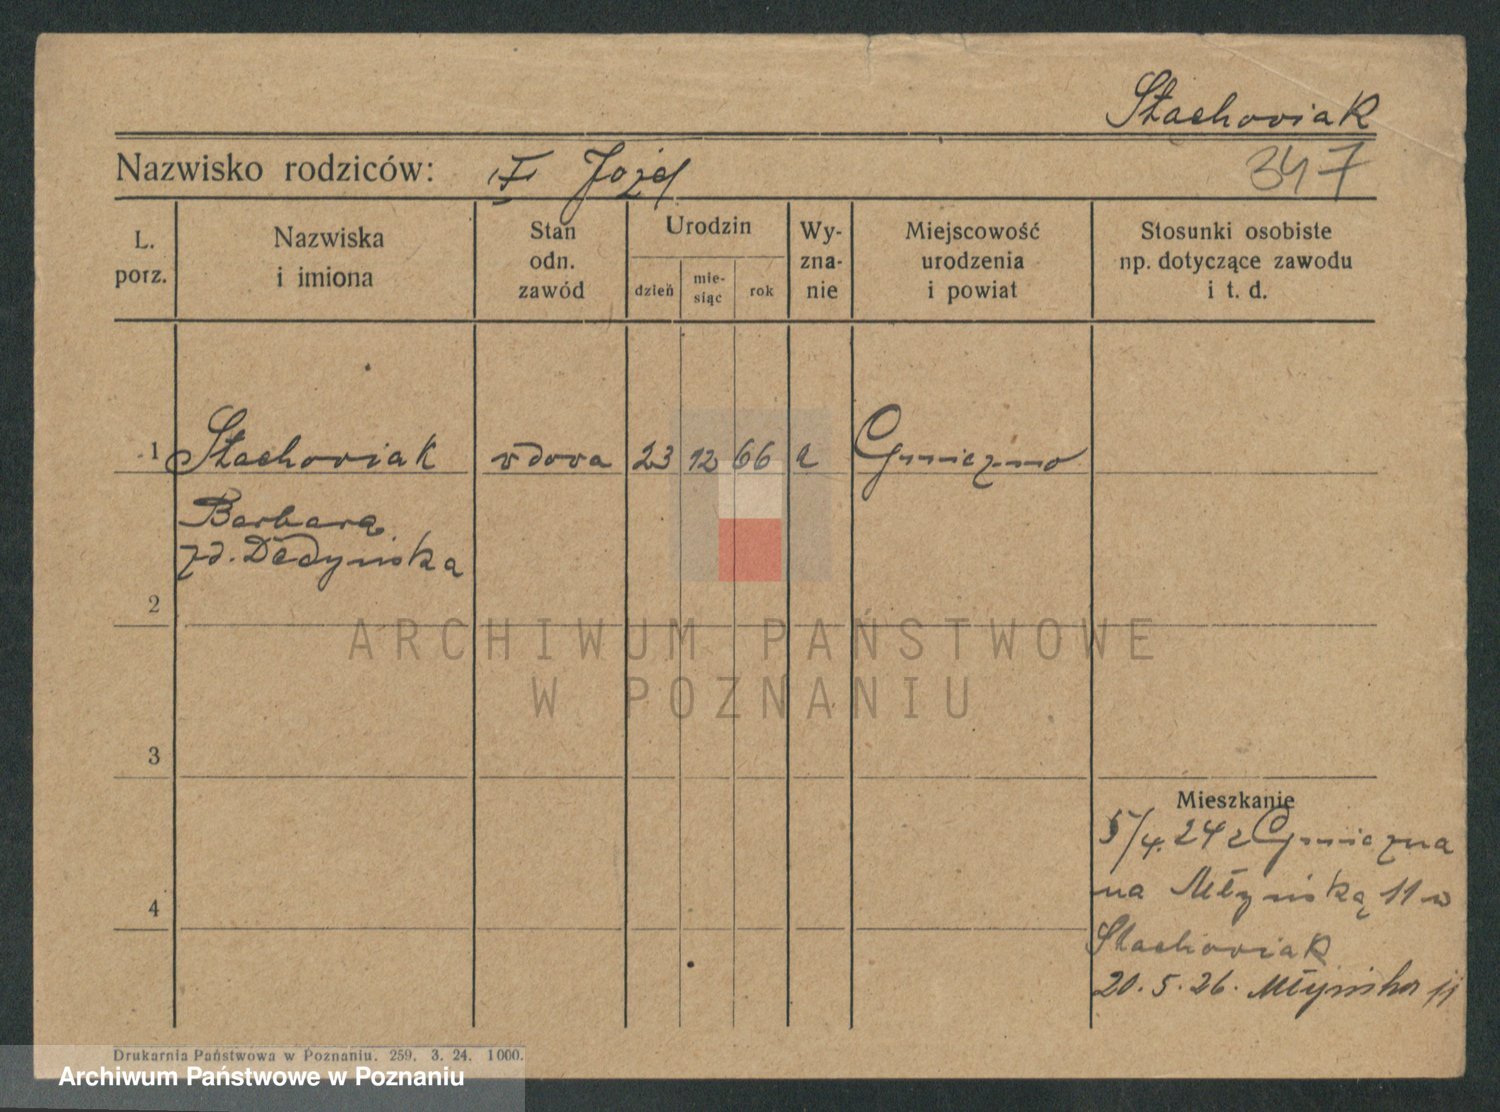 Stachoviak
Nazwisko rodziców: Józef
347
L. porz.
Nazwiska i imiona
Stan odn. zawód
Urodzin
dzień
mie-siąc
rok
Wy-zna-nie
Miejscowość urodzenia i powiat
Stosunki osobiste np. dotyczące zawodu i t. d.
1 Stachoviak vdova 23 12 66 Gniezno
Barbara
zd. Dedyńska
2
ARCHIWUM PAŃSTWOWE
W POZNANIU
3
Mieszkanie
5/4.24 z Gniezna
na Młyńską 11 w
4
Stachoviak
20.5.26. Młyńska 11
Drukarnia Państwowa w Poznaniu. 259. 3. 24. 1000.
Archiwum Państwowe w Poznaniu